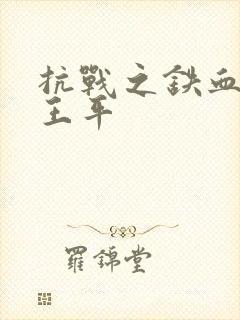 抗戰之鉄血
王平
羅錦堂